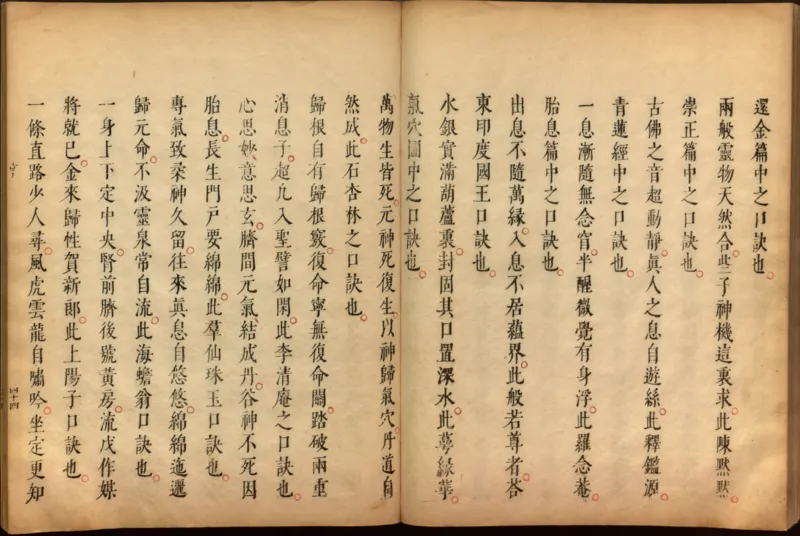 還金篇中之口訣也
兩般靈物天然合些子神機這裏求此陳默默
崇正篇中之口訣也
古佛之音超動靜真人之息自遊絲此釋鑑源
青蓮經中之口訣也
一息漸隨無念窅半醒微覺有身浮此羅念菴
胎息篇中之口訣也
出息不隨萬緣入息不居蘊界此般若尊者荅
東印度國王口訣也
水銀實滿葫蘆裏封固其口置深水此夢緣華
氣穴圖中之口訣也
萬物生皆死元神死復生以神歸氣穴丹道自
然成此石杏林之口訣也
歸根自有歸根竅復命寧無復命關踏破兩重
消息子超凡入聖譬如閑此李清庵之口訣也
心思妙意思玄臍間元氣結成丹谷神不死因
胎息長生門戶要綿綿此羣仙珠玉口訣也
專氣致柔神久留往來真息自悠悠綿綿迤邐
歸元命不汲靈泉常自流此海蟾翁口訣也
一身上下定中央腎前臍後號黃房流戊作媒
將就巳金來歸性賀新郎此上陽子口訣也
一條直路少人尋風虎雲龍自嘯吟坐定更知
四十四